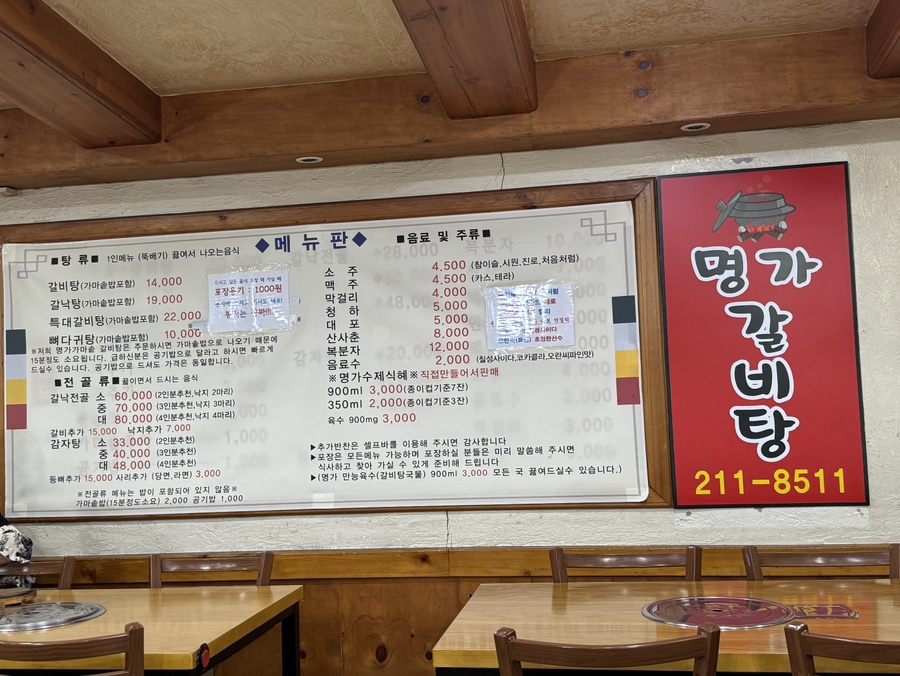 ◆메 뉴 판◆
■탕 류■ 1인메뉴 (뚝배기) 끓여서 나오는음식
갈비탕(가마솥밥포함) 14,000
갈낙탕(가마솥밥포함) 19,000
특대갈비탕(가마솥밥포함) 22,000
뼈다귀탕(가마솥밥포함) 10,000
※저희 명가가마솥 갈비탕은 주문하시면 가마솥밥으로 나오기 때문에
15분정도 소요됩니다. 급하신분은 공기밥으로 달라고 하시면 빠르게
드실수 있습니다. 공기밥으로 드셔도 가격은 동일합니다.
포장용기 : 1000원
■전 골 류■끓이면서 드시는 음식
갈낙전골 소 60,000 (2인분추천,낙지 2마리)
중 70,000 (3인분추천,낙지 3마리)
대 80,000 (4인분추천,낙지 4마리)
갈비추가 15,000 낙지추가 7,000
감자탕 소 33,000 (2인분추천)
중 40,000 (3인분추천)
대 48,000 (4인분추천)
등뼈추가 15,000 사리추가 (당면,라면) 3,000
※전골류 메뉴는 밥이 포함되어 있지 않음※
가마솥밥(15분정도소요) 2,000 공기밥 1,000
■음료 및 주류■
소 주 4,500 (참이슬,시원,진로,처음처럼)
맥 주 4,500 (카스,테라)
막걸리 4,000
청 하 5,000
대 포 5,000
산사춘 8,000
복분자 12,000
음료수 2,000 (칠성사이다,코카콜라,오란씨파인맛)
※명가수제식혜※직접만들어서판매
900ml 3,000(종이컵기준7잔)
350ml 2,000(종이컵기준3잔)
육수 900mg 3,000
▶추가반찬은 셀프바를 이용해 주시면 감사합니다
▶포장은 모든메뉴 가능하며 포장하실 분들은 미리 말씀해 주시면
식사하고 찾아 가실 수 있게 준비해 드립니다
▶(명가 만능육수(갈비탕국물) 900ml 3,000 모든 국 끓여드실수 있습니다.)
명가
갈
비
탕
211-8511